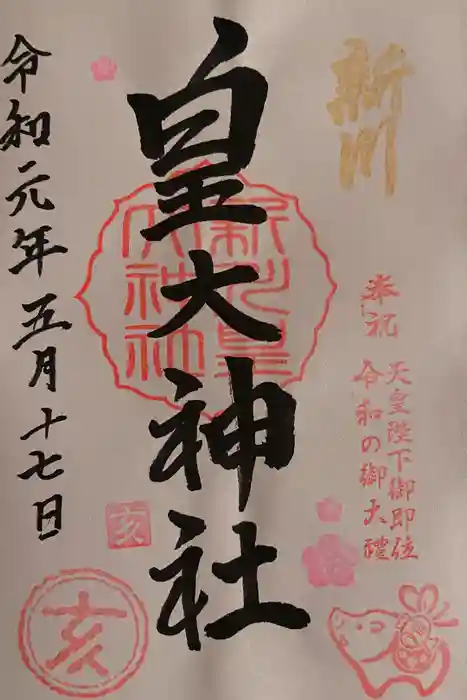 新川
奉祝
天皇陛下御即位
令和の御大禮
皇大神社
新川皇
大神社
亥
亥
令和元年五月十七日